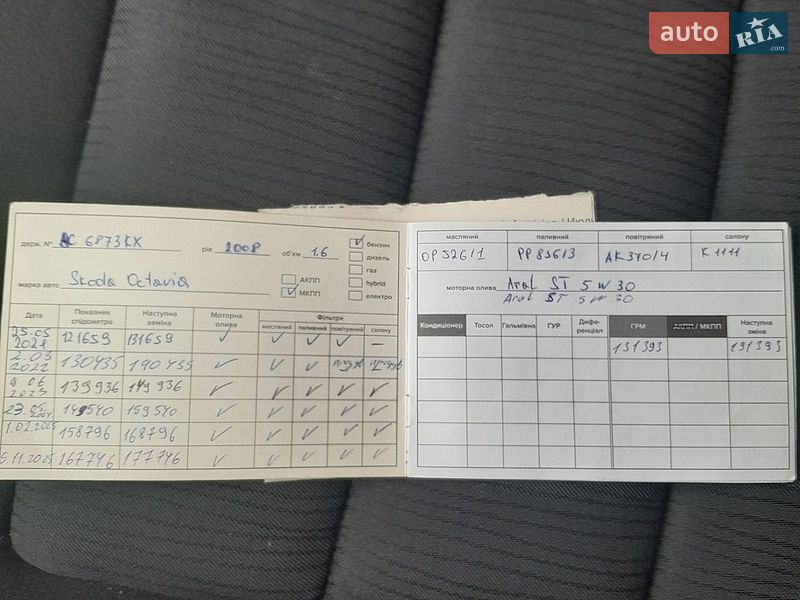 auto RIA .com
держ. № АС 6873КХ рік 2008 об'єм 1.6 бензин
дизель
газ
марка авто Skoda Octavia АКПП hybrid
МКПП електро
Дата Показник спідометра Наступна заміна Моторна олива Фільтри
масляний паливний повітряний салону
25.05 2021 121659 131659 ✓ ✓ ✓ ✓ –
2.03 2022 130435 140435 ✓ ✓ ✓
9 06 2023 139936 149936 ✓ ✓ ✓ ✓ ✓
23.05 2024 149540 159540 ✓ ✓ ✓ ✓ ✓
1.02.2025 158796 168796 ✓ ✓ ✓ ✓ ✓
5.11.2025 167746 177746 ✓ ✓ ✓ ✓ ✓
масляний паливний повітряний салону
OP 526/1 PP 836/3 AK 370/4 K 1111
моторна олива Aral ST 5 W 30
Aral ST 5 W 30
Кондиціонер Тосол Гальмівна ГУР Диференціал ГРМ АКПП / МКПП Наступна заміна
131393 191393